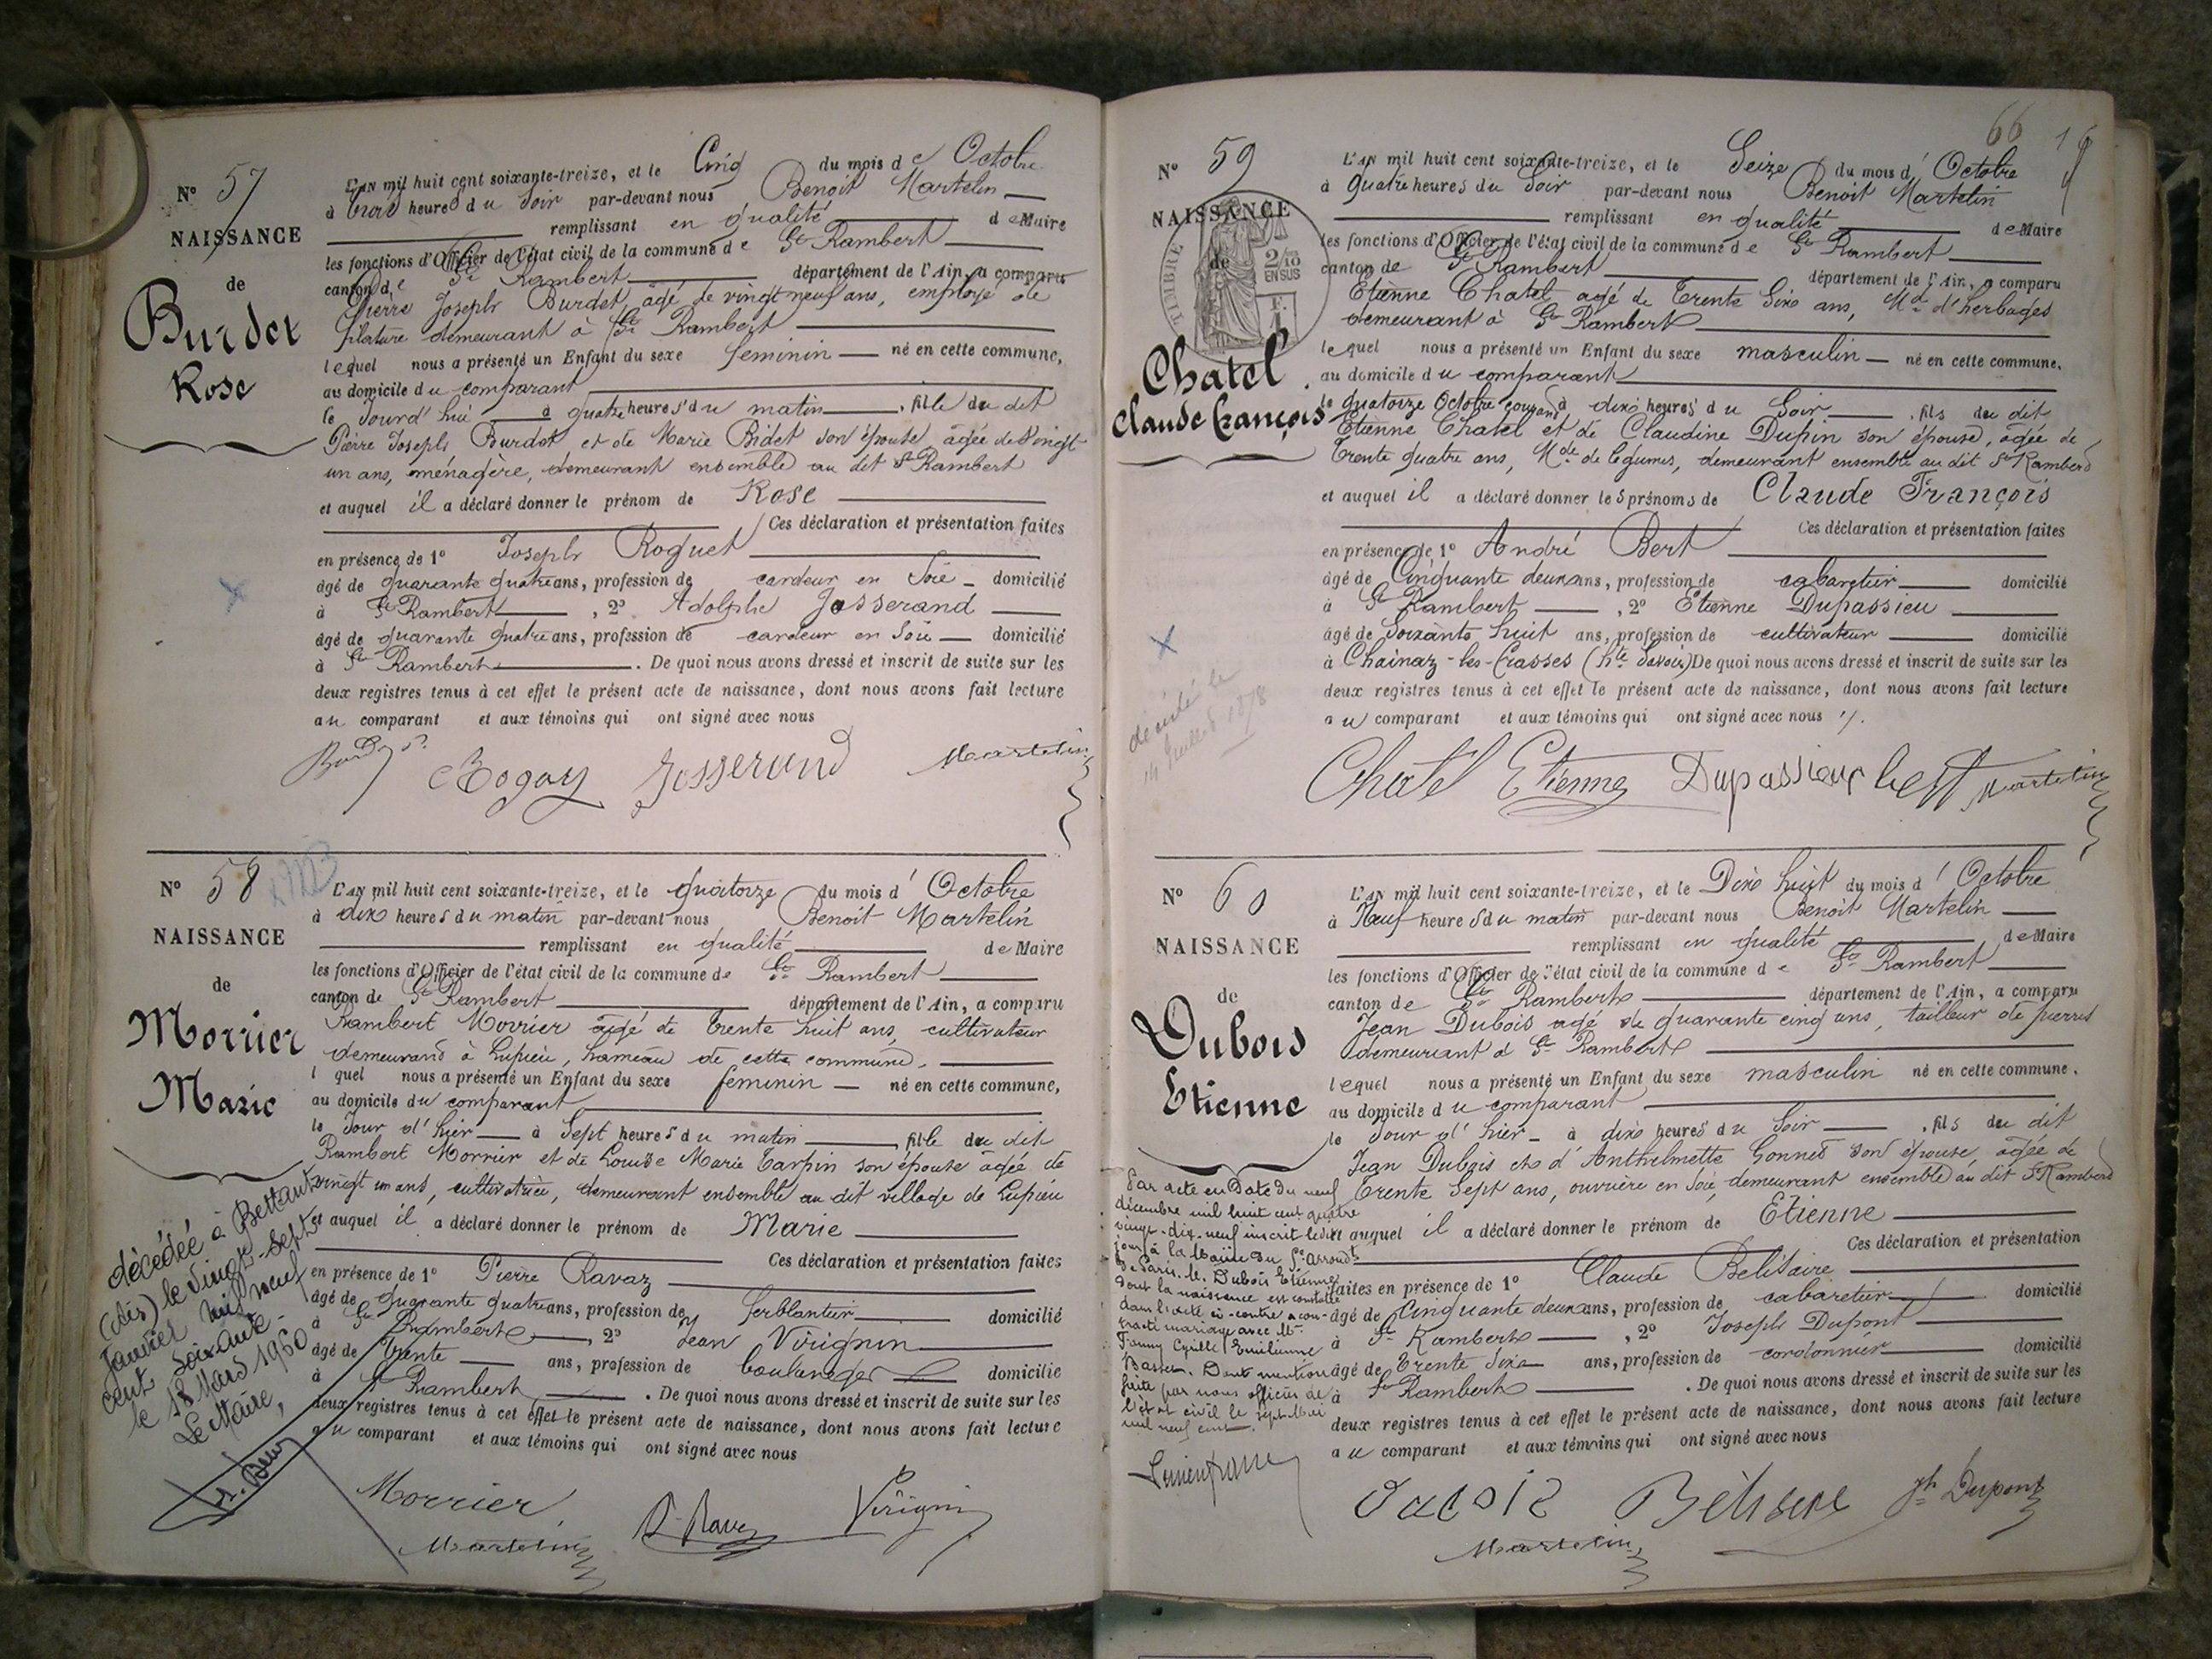 N° 57
NAISSANCE
de
Burdet
Rose
L'AN mil huit cent soixante-treize, et le Cinq du mois de Octobre
à trois heures du Soir par-devant nous Benoit Martelin
remplissant en qualité de Maire
les fonctions d'Officier de l'état civil de la commune de St Rambert
canton de St Rambert département de l'Ain, a comparu
Pierre Joseph Burdet, âgé de vingt neuf ans, employé de
filature demeurant à St Rambert
lequel nous a présenté un Enfant du sexe feminin né en cette commune,
au domicile du comparant
le Jourd'hui à quatre heures du matin, fille du dit
Pierre Joseph Burdet et de Marie Bidet son épouse âgée de vingt
un ans, ménagère, demeurant ensemble au dit St Rambert
et auquel il a déclaré donner le prénom de Rose
Ces déclaration et présentation faites
en présence de 1° Joseph Roguet
âgé de quarante quatre ans, profession de cardeur en Soie domicilié
à St Rambert, 2° Adolphe Josserand
âgé de quarante quatre ans, profession de cardeur en Soie domicilié
à St Rambert. De quoi nous avons dressé et inscrit de suite sur les
deux registres tenus à cet effet le présent acte de naissance, dont nous avons fait lecture
au comparant et aux témoins qui ont signé avec nous
Josserand Martelin
N° 58
NAISSANCE
de
Morrier
Marie
L'AN mil huit cent soixante-treize, et le quatorze du mois d'Octobre
à dix heures du matin par-devant nous Benoit Martelin
remplissant en qualité de Maire
les fonctions d'Officier de l'état civil de la commune de St Rambert
canton de St Rambert département de l'Ain, a comparu
Rambert Morrier âgé de trente huit ans, cultivateur
demeurant à Lupieu, hameau de cette commune,
lquel nous a présenté un Enfant du sexe feminin né en cette commune,
au domicile du comparant
le Jour d'hier à Sept heures du matin, fille du dit
Rambert Morrier et de Louise Marie Tarpin son épouse âgée de
vingt un ans, cultivatrice, demeurant ensemble au dit village de Lupieu
et auquel il a déclaré donner le prénom de Marie
Ces déclaration et présentation faites
en présence de 1° Pierre Ravaz
âgé de quarante quatre ans, profession de ferblantier domicilié
à St Rambert, 2° Jean Virignin
âgé de trente ans, profession de boulanger domicilié
à St Rambert. De quoi nous avons dressé et inscrit de suite sur les
deux registres tenus à cet effet le présent acte de naissance, dont nous avons fait lecture
au comparant et aux témoins qui ont signé avec nous
décédée à Bettant
(Ain) le vingt-sept
Janvier mil neuf
cent soixante.
le 18 Mars 1960
Le Maire,
Morrier
Martelin
66
N° 59
NAISSANCE
de
TIMBRE
2/10 EN SUS
Chatel
Claude François
L'AN mil huit cent soixante-treize, et le Seize du mois d'Octobre
à quatre heures du Soir par-devant nous Benoit Martelin
remplissant en qualité de Maire
les fonctions d'Officier de l'état civil de la commune de St Rambert
canton de St Rambert département de l'Ain, a comparu
Etienne Chatel agé de trente Six ans, Md d'herbages
demeurant à St Rambert
lequel nous a présenté un Enfant du sexe masculin né en cette commune.
au domicile du comparant
le quatorze Octobre courant à dix heures du Soir, fils du dit
Etienne Chatel et de Claudine Dupin son épouse, âgée de
trente quatre ans, Mde de legumes, demeurant ensemble au dit St Rambert
et auquel il a déclaré donner les prénoms de Claude François
Ces déclaration et présentation faites
en présence de 1° André Bert
âgé de Cinquante deux ans, profession de cabaretier domicilié
à St Rambert, 2° Etienne Dupassieu
âgé de Soixante huit ans, profession de cultivateur domicilié
à Chainaz-les-Frasses (hte Savoie) De quoi nous avons dressé et inscrit de suite sur les
deux registres tenus à cet effet le présent acte de naissance, dont nous avons fait lecture
au comparant et aux témoins qui ont signé avec nous
décédé le
14 Juillet 1878
Chatel Etienne Dupassieux Martelin
N° 60
NAISSANCE
de
Dubois
Etienne
L'AN mil huit cent soixante-treize, et le Dix huit du mois d'Octobre
à Neuf heures du matin par-devant nous Benoit Martelin
remplissant en qualité de Maire
les fonctions d'Officier de l'état civil de la commune de St Rambert
canton de St Rambert département de l'Ain, a comparu
Jean Dubois agé de quarante cinq ans, tailleur de pierres
demeurant à St Rambert
lequel nous a présenté un Enfant du sexe masculin né en cette commune.
au domicile du comparant
le Jour d'hier à dix heures du Soir, fils du dit
Jean Dubois et d'Anthelmette Gonnet son épouse, âgée de
trente Sept ans, ouvrière en soie, demeurant ensemble au dit St Rambert
et auquel il a déclaré donner le prénom de Etienne
Ces déclaration et présentation
faites en présence de 1° Claude Belisaire
âgé de Cinquante deux ans, profession de cabaretier domicilié
à St Rambert, 2° Joseph Dupont
âgé de trente Six ans, profession de cordonnier domicilié
à St Rambert. De quoi nous avons dressé et inscrit de suite sur les
deux registres tenus à cet effet le présent acte de naissance, dont nous avons fait lecture
au comparant et aux témoins qui ont signé avec nous
Par acte en Date du neuf
décembre mil huit cent quatre
vingt-dix-neuf inscrit ledit
jour à la Mairie du arrondt
de Paris. M. Dubois Etienne
dont la naissance est constatée
dans l'acte ci-contre a con-
tracté mariage avec Mlle
Fanny Emilienne
Dont mention
faite par nous officier de
l'état civil le sept Mai
mil neuf cent.
Jh Dupont
Martelin